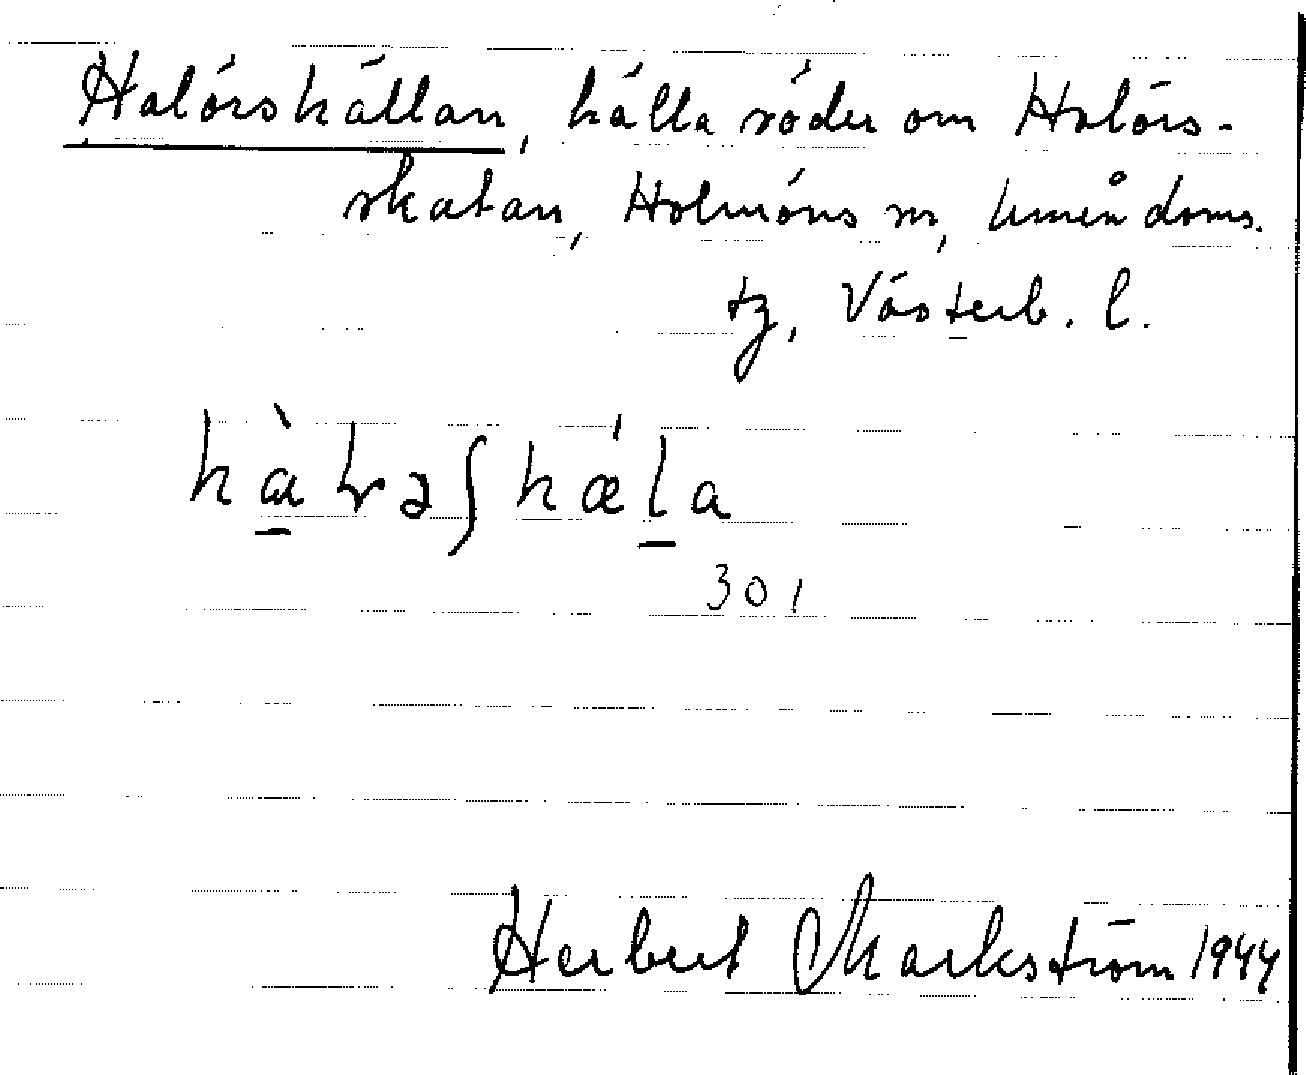 Halörskällan, källa söder om Halörs-
skatan, Holmöns sn, Umeå doms.
tg, Västerb. l.
301
Herbert Markström 1944